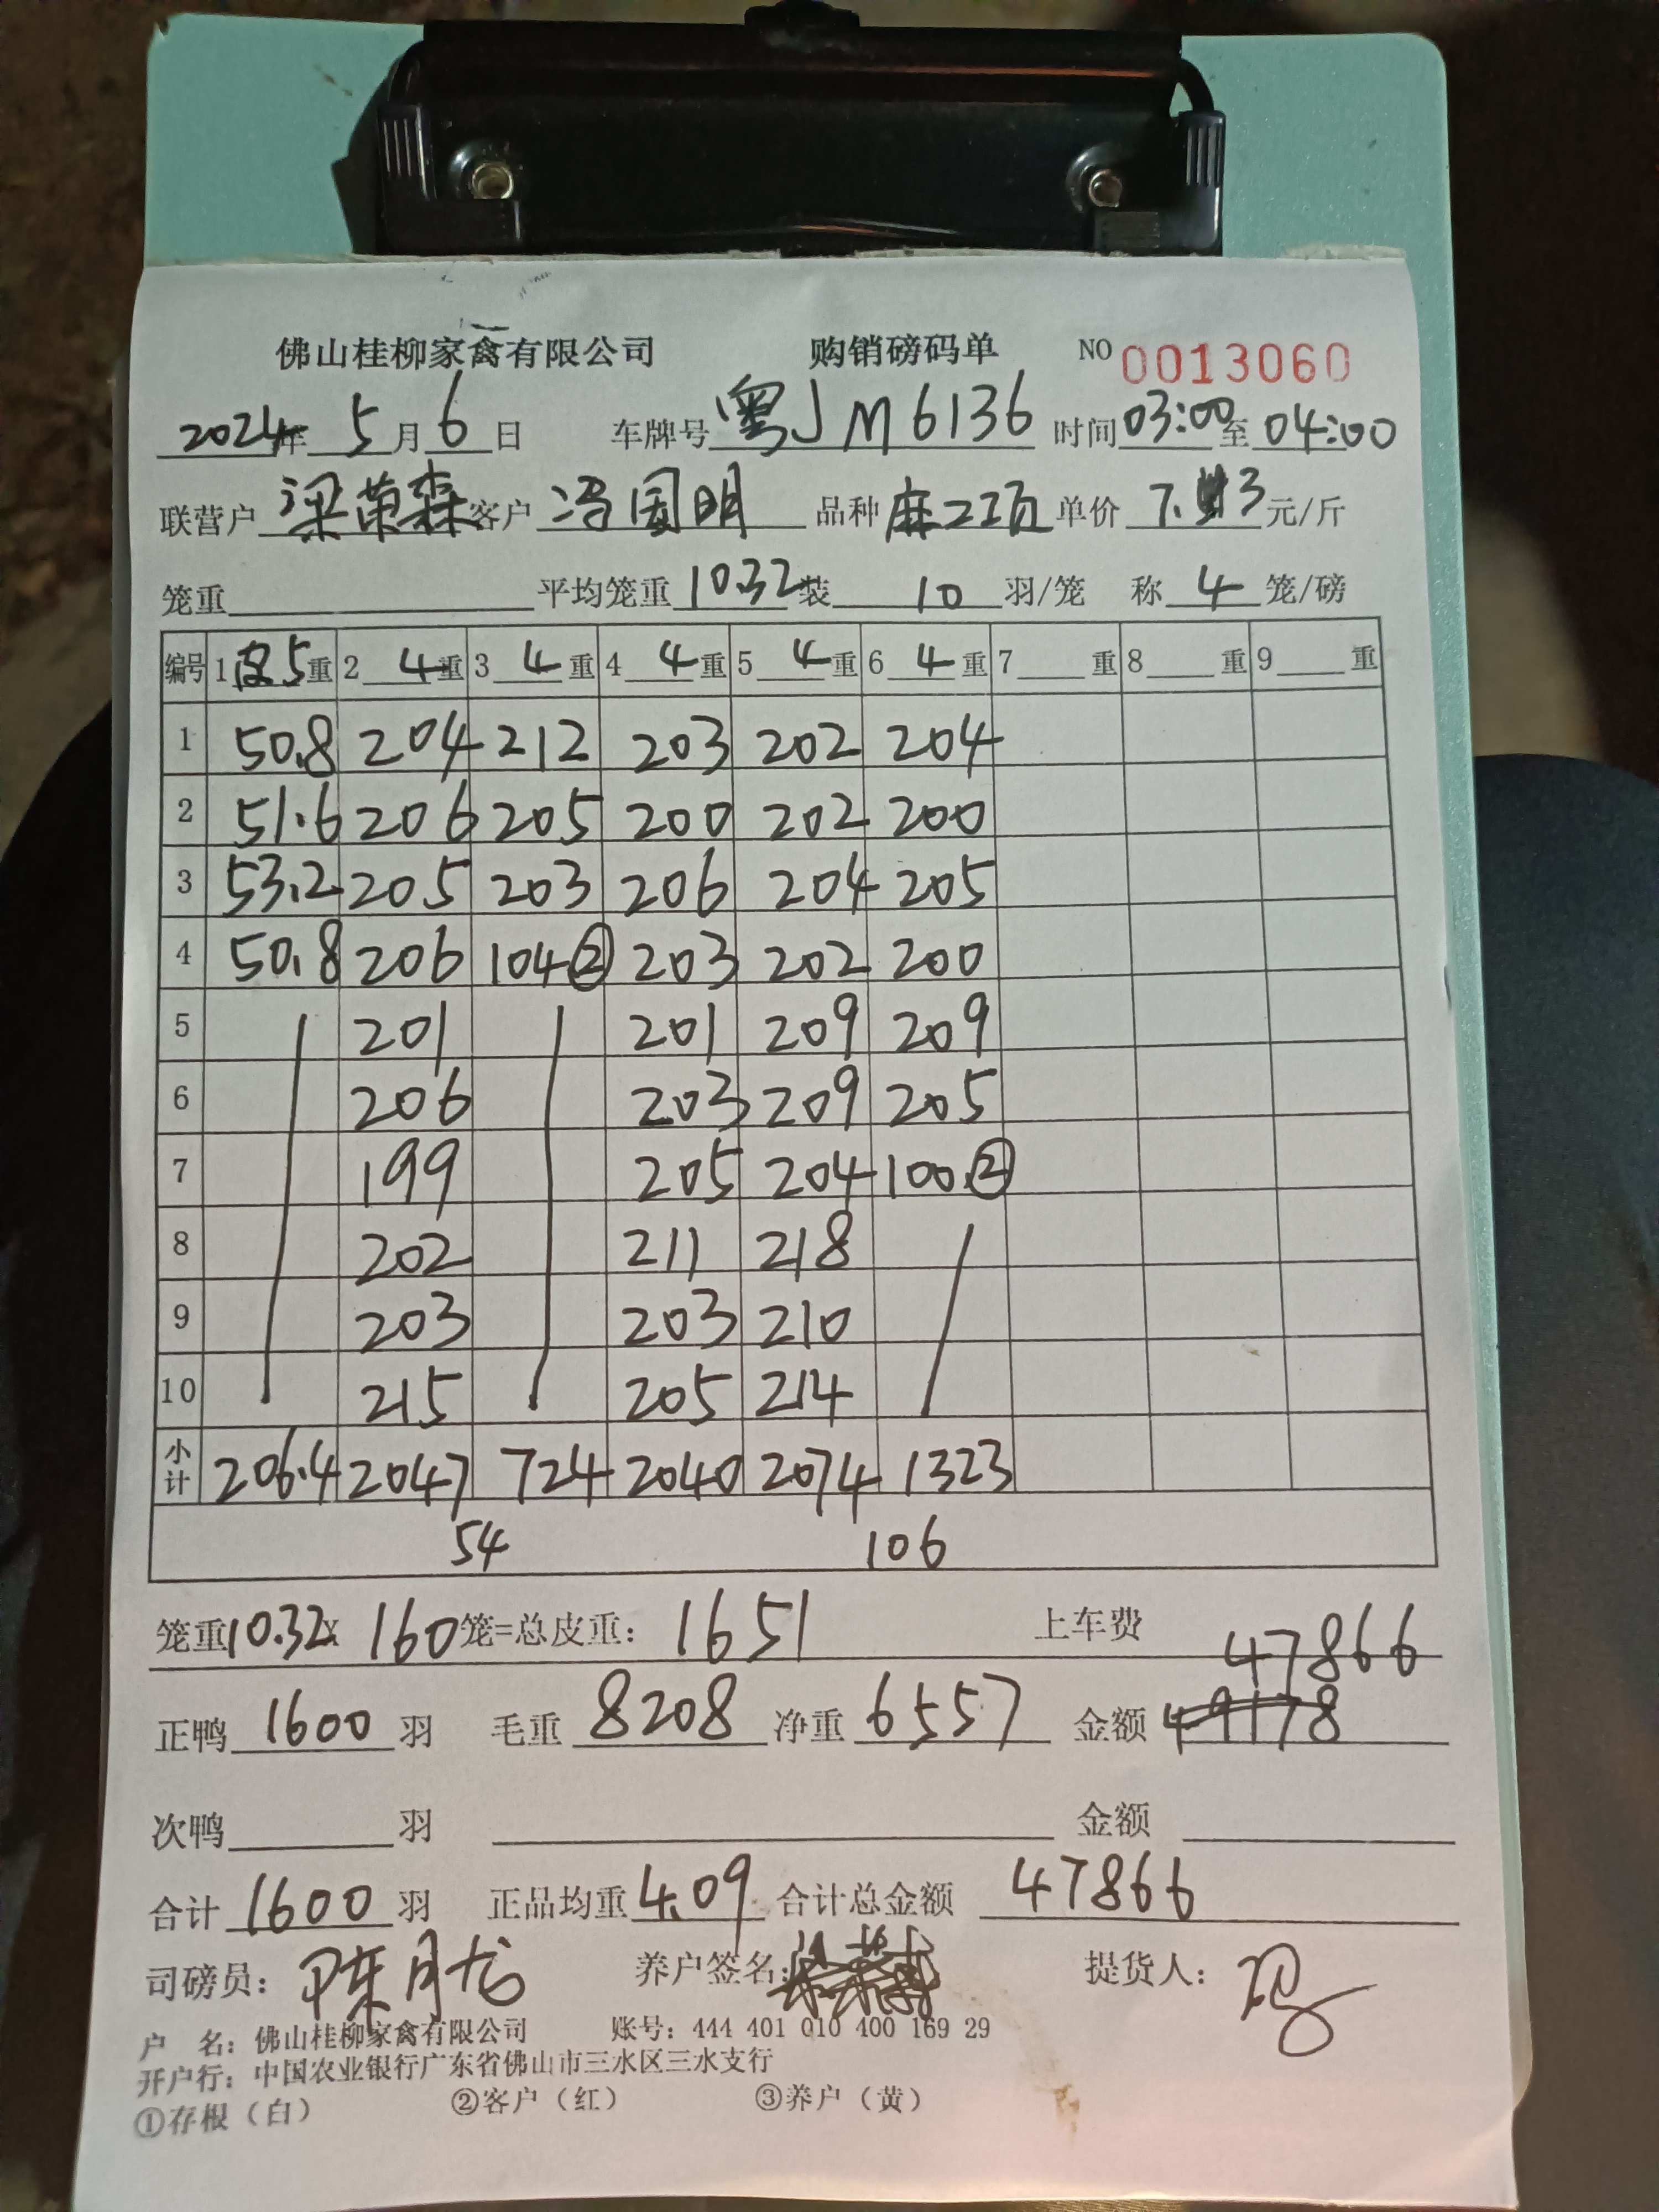 佛山桂柳家禽有限公司 购销磅码单 NO 0013060
2024年 5月 6日 车牌号 粤JM6136 时间 03:00 至 04:00
联营户 梁荣森 客户 冯国明 品种 麻二项 单价 7.3 元/斤
笼重 平均笼重 10.32 装 10 羽/笼 称 4 笼/磅
编号 1 皮5 重 2 4 重 3 4 重 4 4 重 5 4 重 6 4 重 7 重 8 重 9 重
1 50.8 204 212 203 202 204
2 51.6 206 205 200 202 200
3 53.2 205 203 206 204 205
4 50.8 206 104② 203 202 200
5 201 201 209 209
6 206 203 209 205
7 199 205 204 100.②
8 202 211 218
9 203 203 210
10 215 205 214
小计 206.4 2047 724 2040 2074 1323
54 106
笼重 10.32 x 160 笼=总皮重: 1651 上车费
47866
正鸭 1600 羽 毛重 8208 净重 6557 金额 49178
次鸭 羽 金额
合计 1600 羽 正品均重 4.09 合计总金额 47866
司磅员: 陈月龙 养户签名: 提货人: 冯
户 名: 佛山桂柳家禽有限公司 账号: 444 401 010 400 169 29
开户行: 中国农业银行广东省佛山市三水区三水支行
①存根（白） ②客户（红） ③养户（黄）